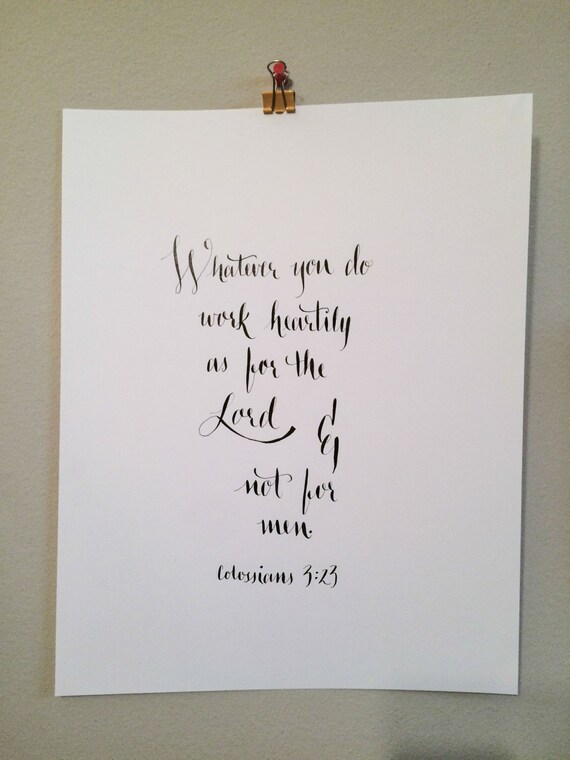 Whatever you do
work heartily
as for the
Lord &
not for
men.
Colossians 3:23